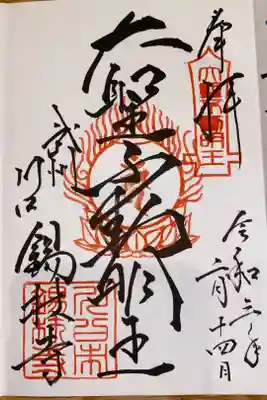 奉拝
大聖不動明王
武州
川口
錫杖寺
令和三年
二月十四日